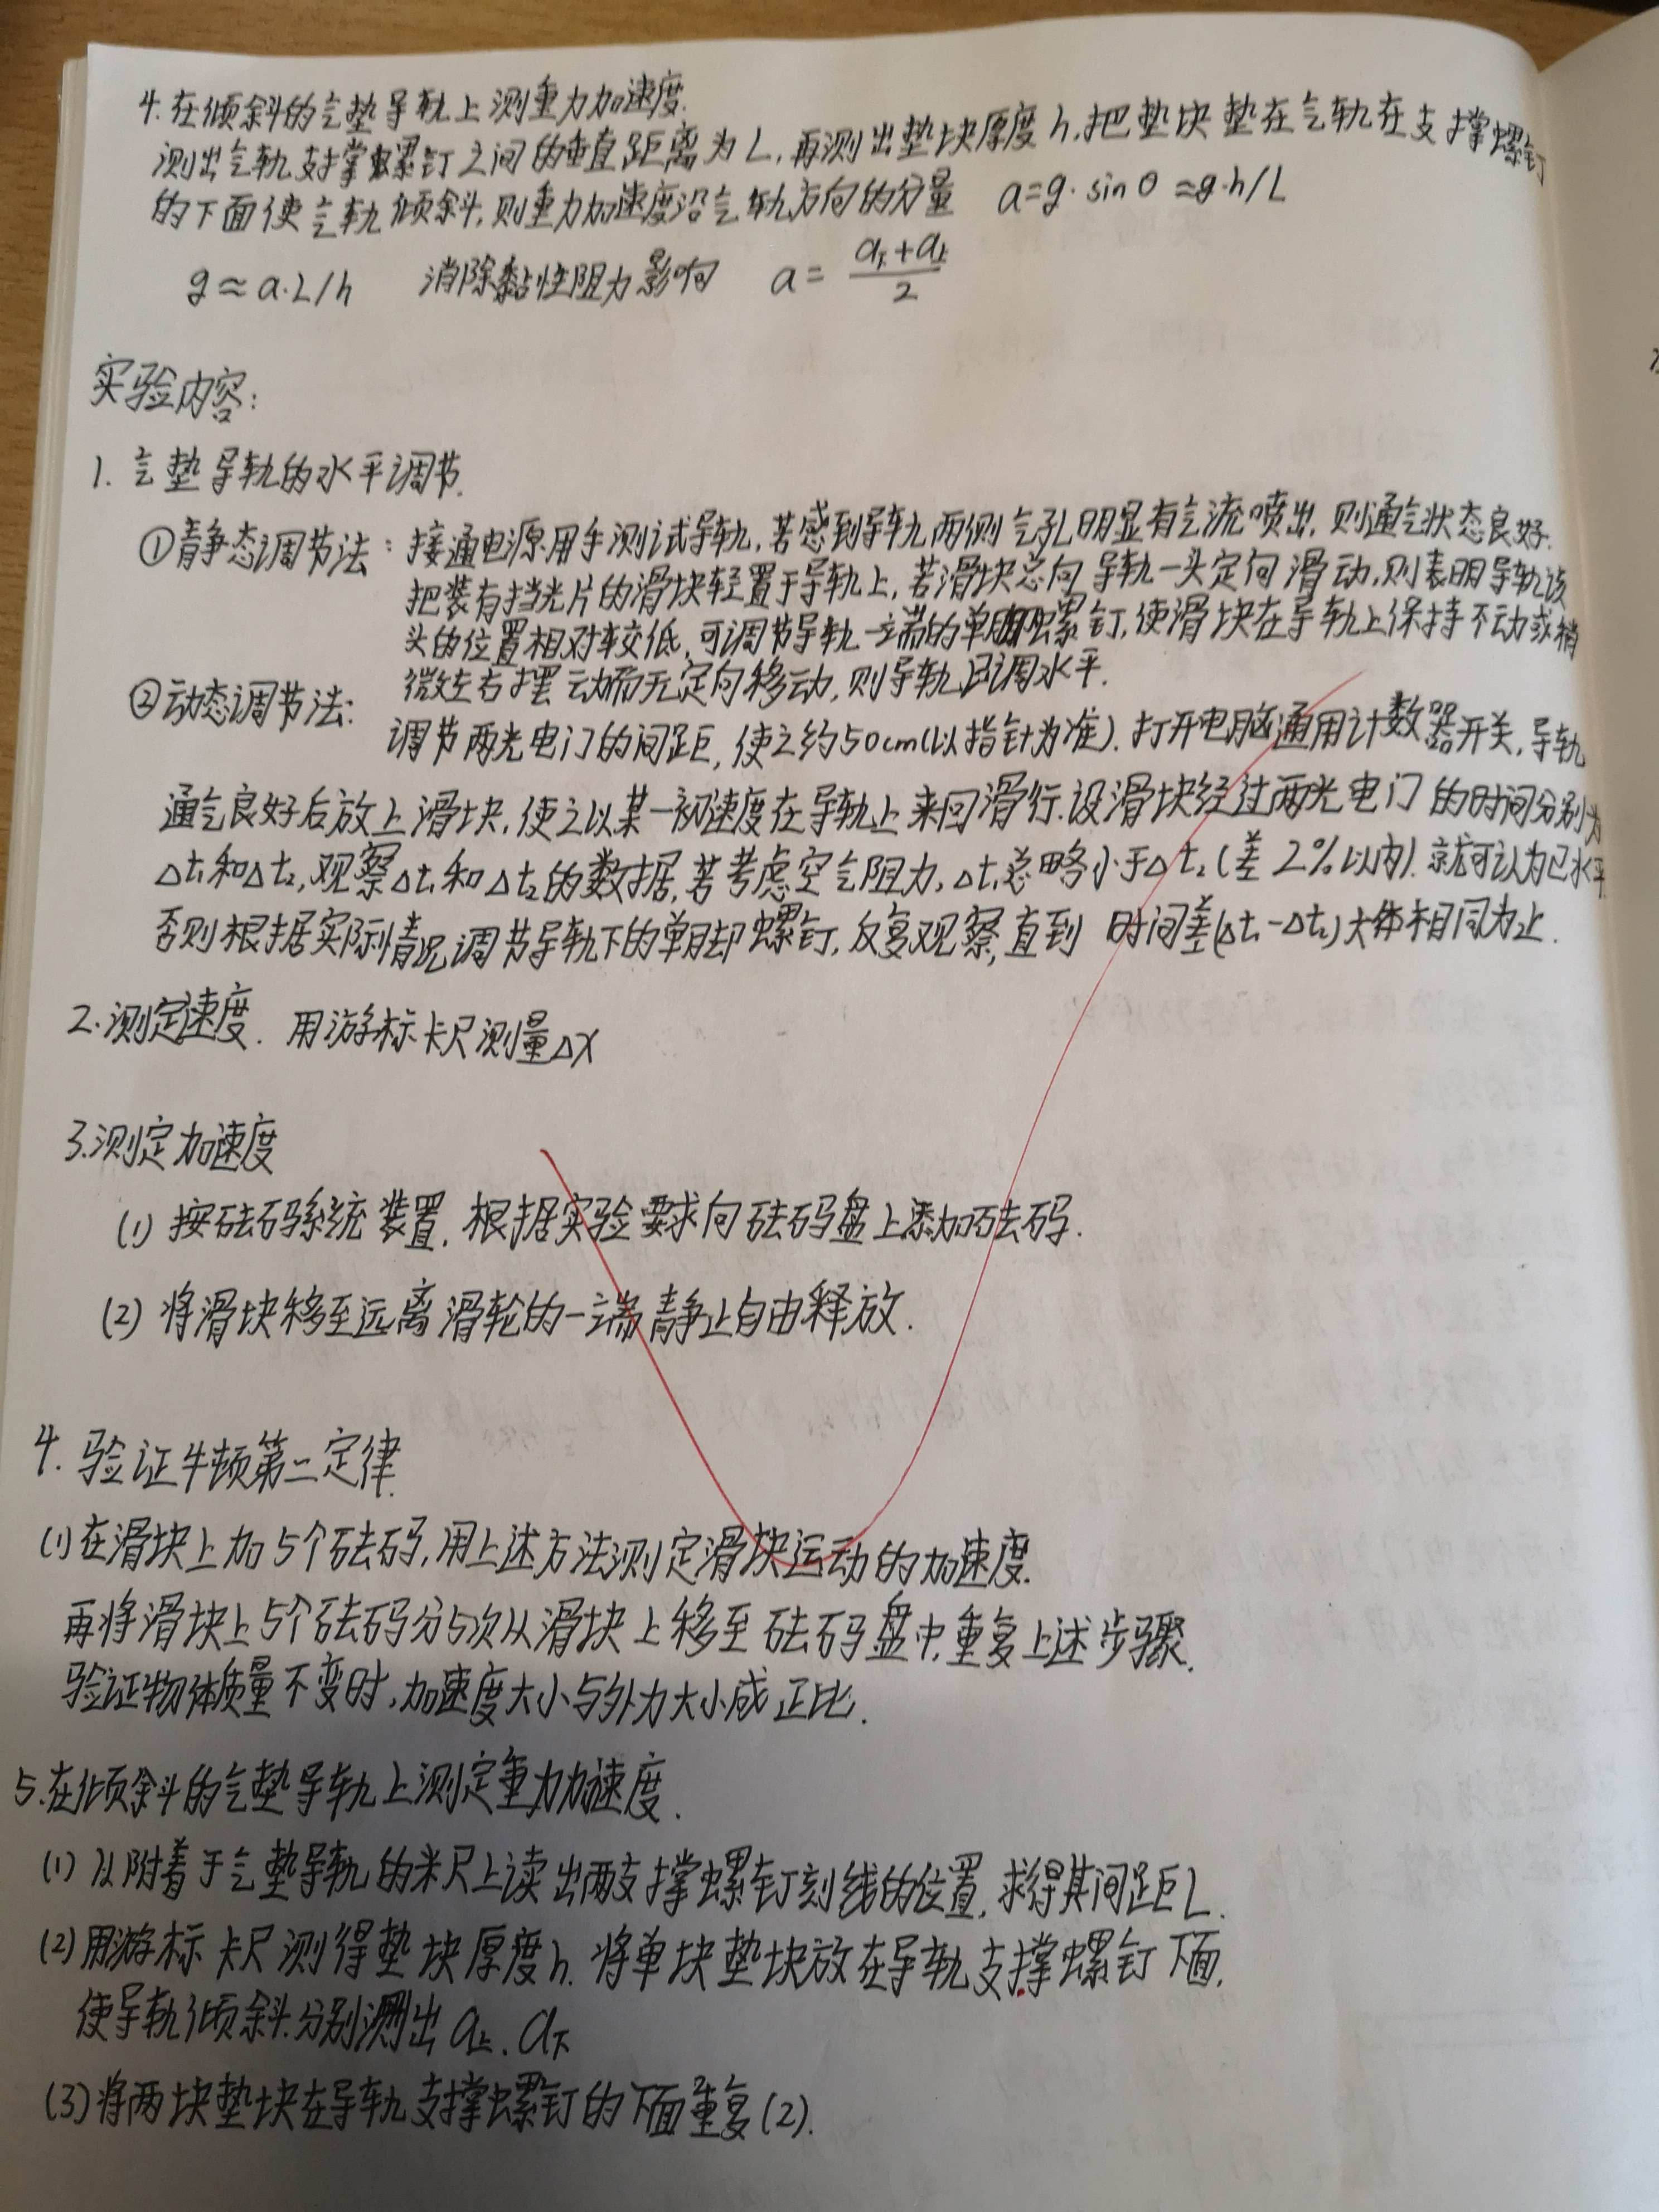 4.在倾斜的气垫导轨上测重力加速度.
测出气轨支撑螺钉之间的垂直距离为L,再测出垫块厚度h,把垫块垫在气轨在支撑螺钉
的下面使气轨倾斜,则重力加速度沿气轨方向的分量 a=g·sinθ≈g·h/L
g≈a·L/h 消除黏性阻力影响 a=(a下+a上)/2
实验内容:
1.气垫导轨的水平调节.
①静态调节法:接通电源.用手测试导轨,若感到导轨两侧气孔明显有气流喷出,则通气状态良好.
把装有挡光片的滑块轻置于导轨上,若滑块总向导轨一头定向滑动,则表明导轨该
头的位置相对较低,可调节导轨一端的单脚螺钉,使滑块在导轨上保持不动或稍
微左右摆动而无定向移动,则导轨已调水平.
②动态调节法:调节两光电门的间距,使之约50cm(以指针为准).打开电脑通用计数器开关,导轨
通气良好后放上滑块,使之以某一初速度在导轨上来回滑行.设滑块经过两光电门的时间分别为
Δt₁和Δt₂,观察Δt₁和Δt₂的数据,若考虑空气阻力,Δt₁总略小于Δt₂(差2%以内).就可认为已水平
否则根据实际情况调节导轨下的单脚螺钉,反复观察,直到时间差(Δt₁-Δt₂)大体相同为止.
2.测定速度.用游标卡尺测量Δx
3.测定加速度
(1)按砝码系统装置,根据实验要求向砝码盘上添加砝码.
(2)将滑块移至远离滑轮的一端静止自由释放.
4.验证牛顿第二定律.
(1)在滑块上加5个砝码,用上述方法测定滑块运动的加速度.
再将滑块上5个砝码分5次从滑块上移至砝码盘中,重复上述步骤.
验证物体质量不变时,加速度大小与外力大小成正比.
5.在倾斜的气垫导轨上测定重力加速度.
(1)从附着于气垫导轨的米尺上读出两支撑螺钉刻线的位置,求得其间距L.
(2)用游标卡尺测得垫块厚度h.将单块垫块放在导轨支撑螺钉下面,
使导轨倾斜.分别测出a上.a下
(3)将两块垫块在导轨支撑螺钉的下面重复(2).